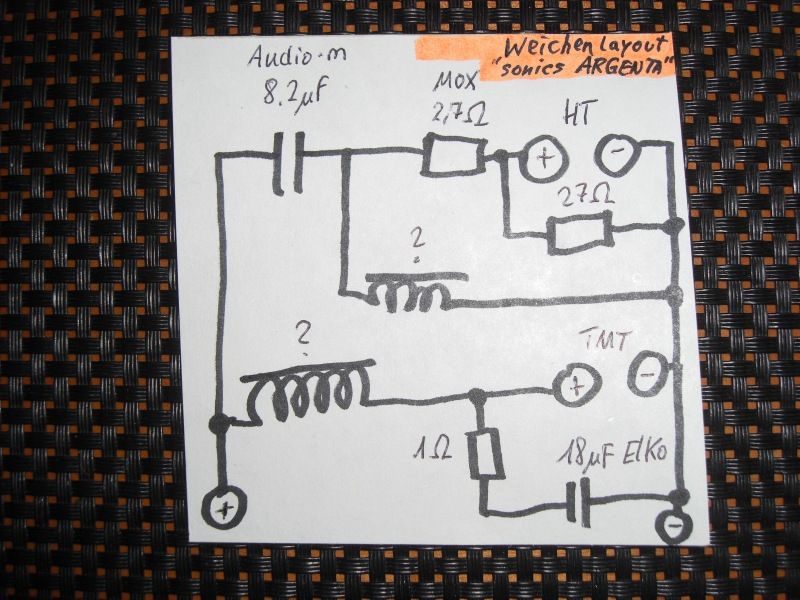 Weichenlayout
"sonics ARGENTA"
Audio-m
8.2µF
MOX
2,7Ω
HT
+
-
27Ω
?
?
TMT
+
-
1Ω
18µF Elko
+
-